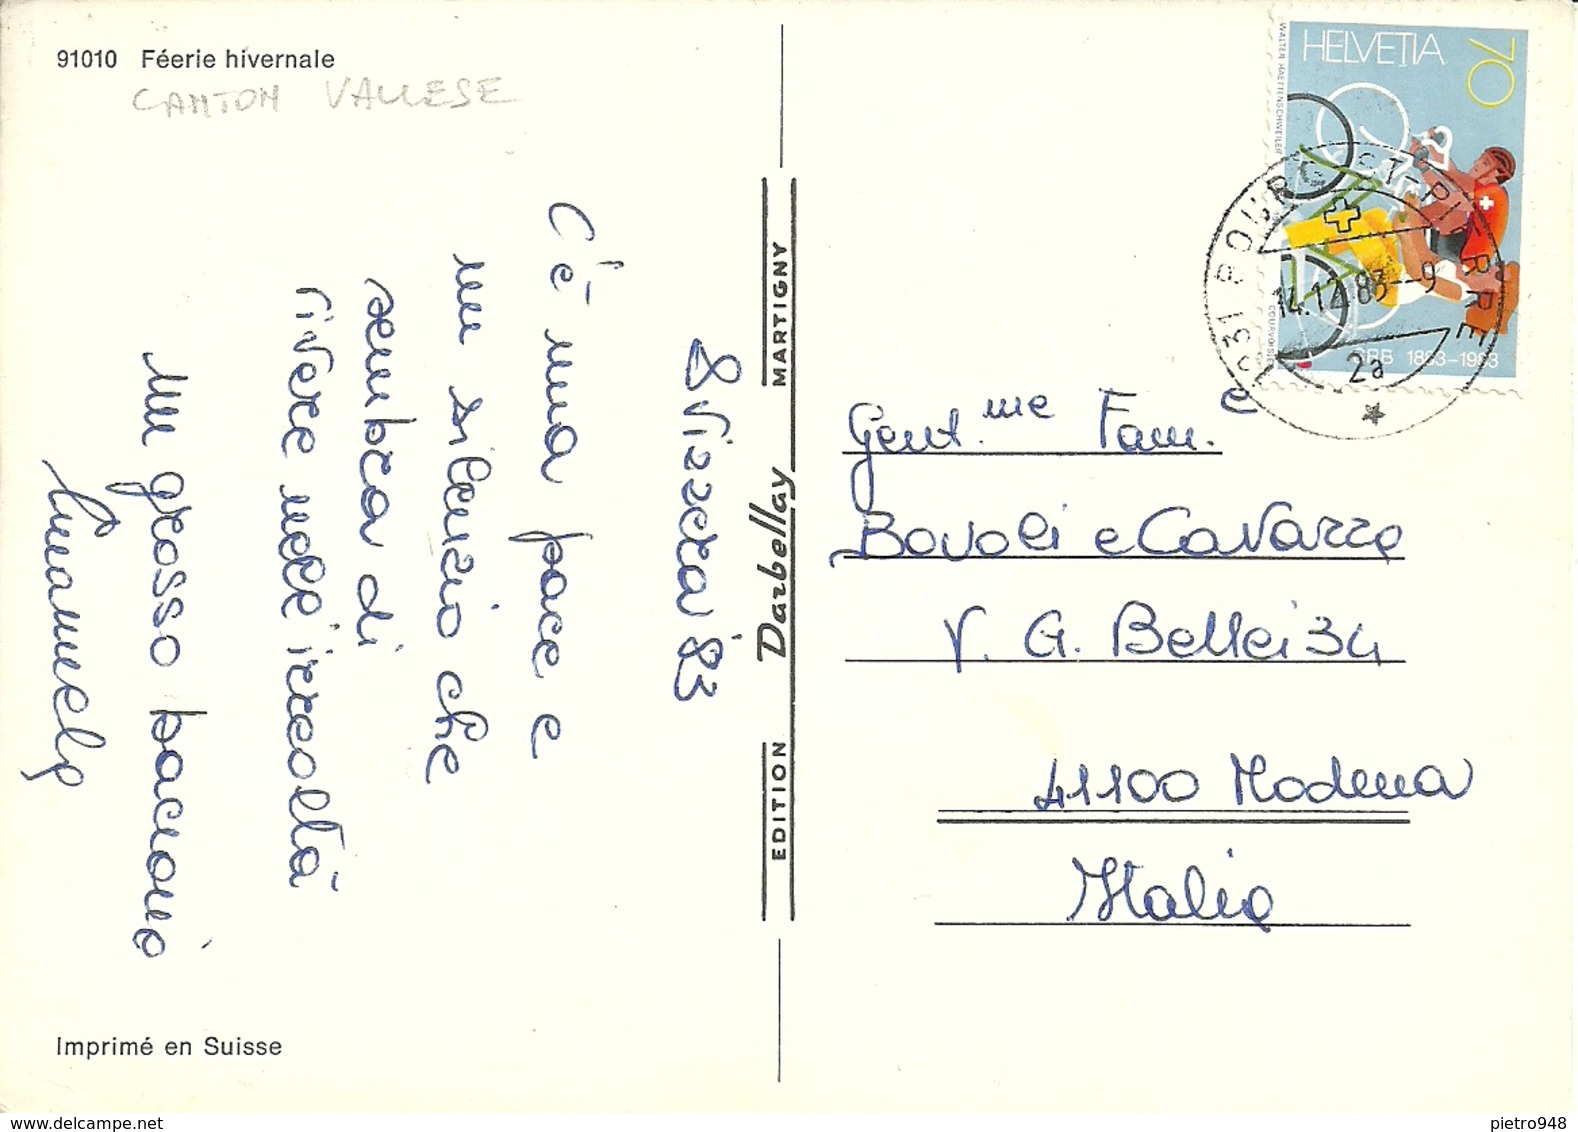 91010 Féerie hivernale
CANTON VALLESE
Svizzera '83
C'è una pace e
un silenzio che
sembra di
vivere nell'irrealtà
Un grosso bacione
Emanuela
Imprimé en Suisse
EDITION Darbellay MARTIGNY
HELVETIA 70
WALTER HAETTENSCHWEILER
COURVOISIER
SRB 1883-1983
1931 BOURG-ST-PIERRE
14.12.83--9
2a
Gent.me Fam.e
Bovoli e Cavazza
V. G. Bellei 34
41100 Modena
Italia
pietro948